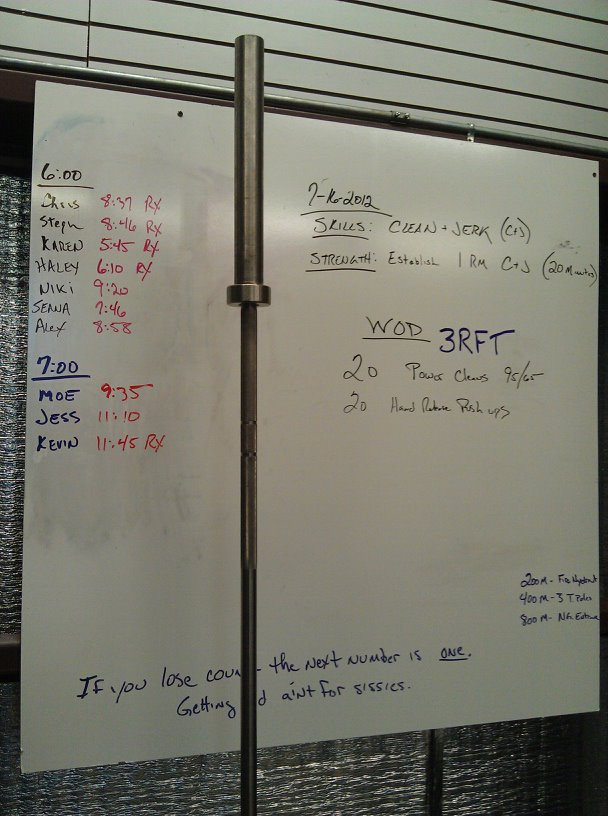 6:00
Chris 8:37 RX
Steph 8:46 RX
KAREN 5:45 RX
HALEY 6:10 RX
NIKI 9:20
SENNA 7:46
Alex 8:58
7:00
MOE 9:35
JESS 11:10
KEVIN 11:45 RX
7-16-2012
SKILLS: CLEAN + JERK (C+J)
STRENGTH: Establish 1 RM C+J (20 Minutes)
WOD 3RFT
20 Power Cleans 95/65
20 Hand Release Push ups
200M - Fire Hydrant
400M - 3 T. Poles
800M - Entrance
If you lose coun the next number is one.
Getting d ain't for sissies.